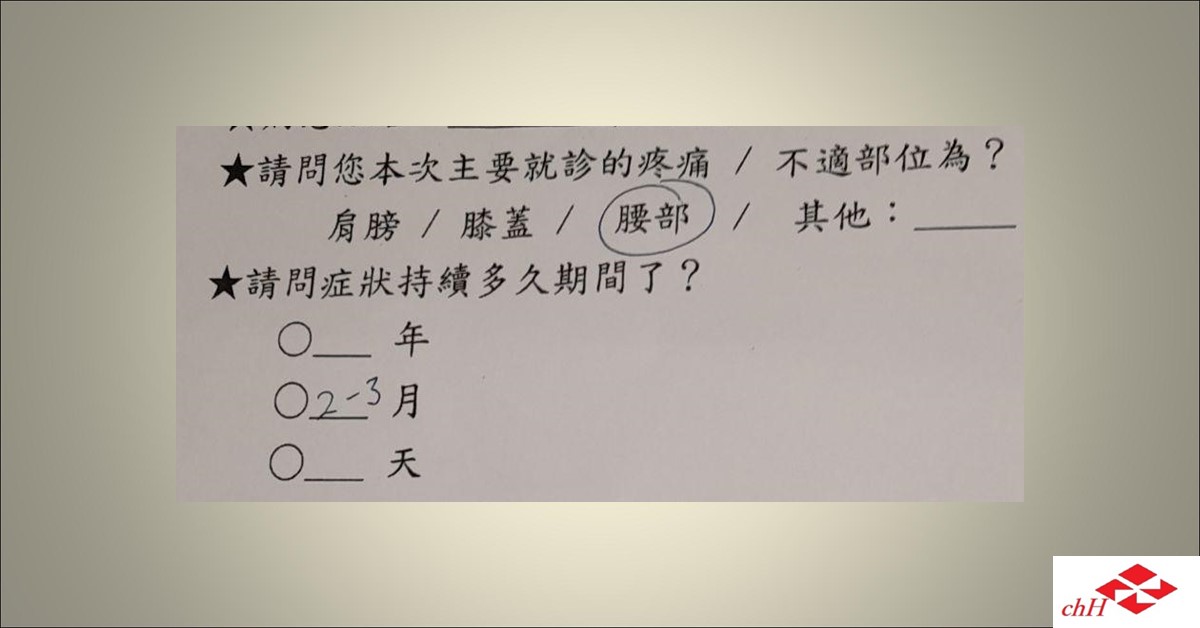 ★請問您本次主要就診的疼痛 / 不適部位為？
肩膀 / 膝蓋 / 腰部 / 其他：＿＿＿
★請問症狀持續多久期間了？
○＿＿ 年
○2-3 月
○＿＿ 天
chH